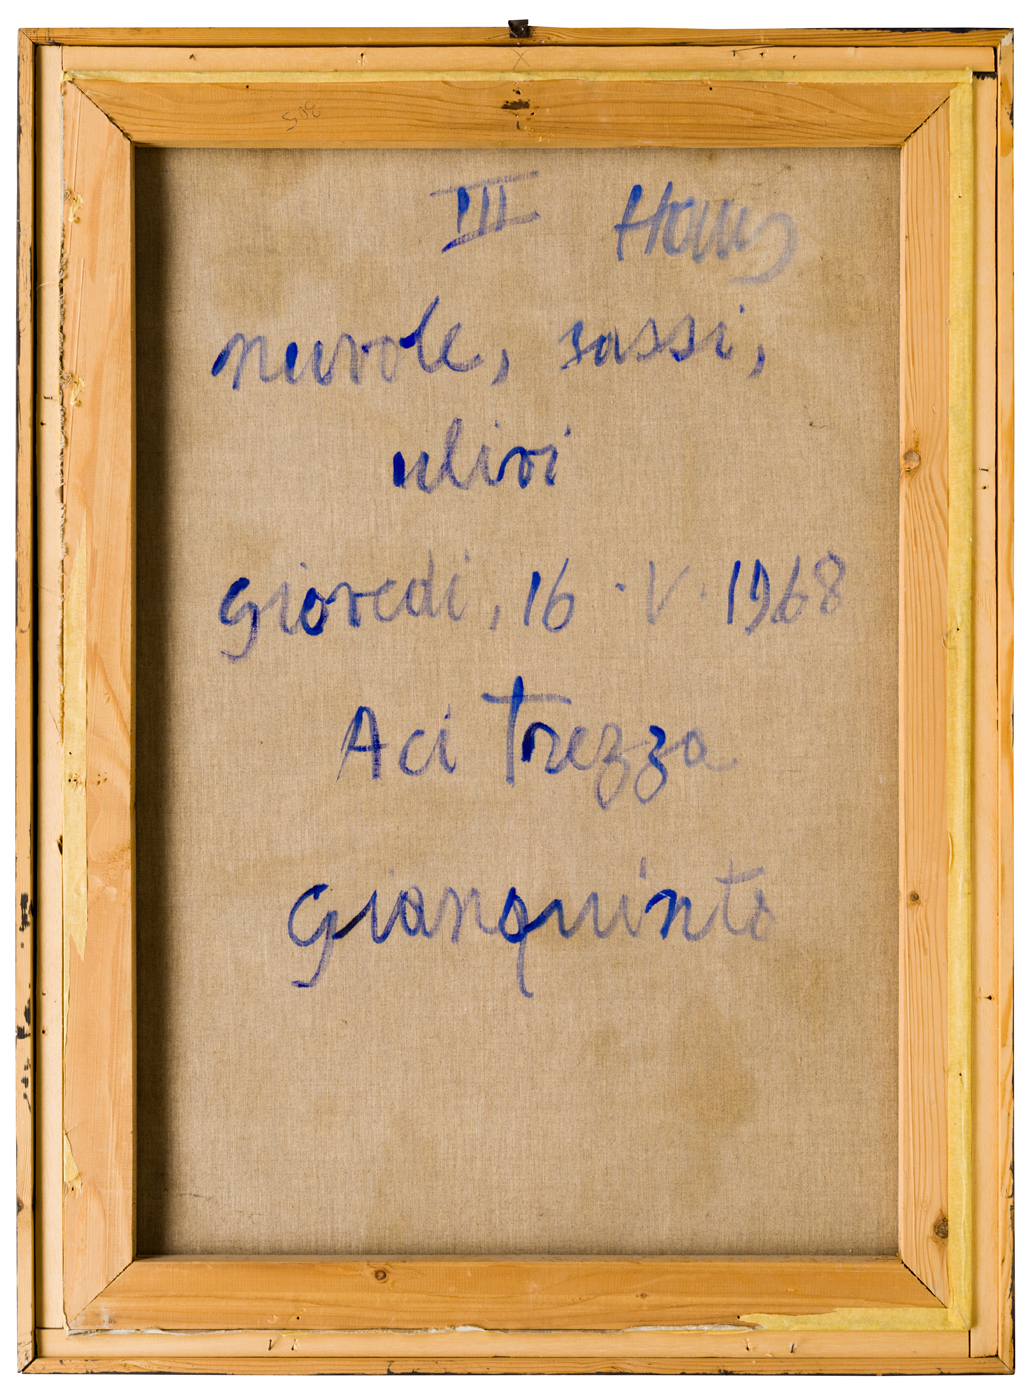 III
nuvole, sassi,
ulivi
giovedi, 16 · V · 1968
Aci Trezza
Gianquinto